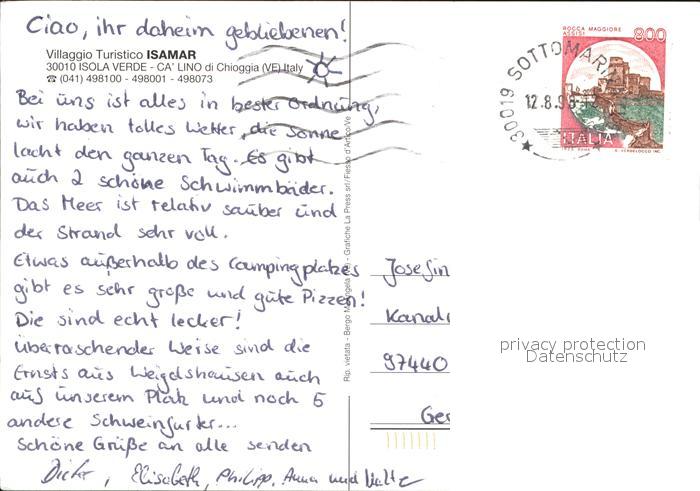 Ciao, ihr daheim gebliebenen!
Villaggio Turistico ISAMAR
30010 ISOLA VERDE - CA' LINO di Chioggia (VE) Italy
☎ (041) 498100 - 498001 - 498073
Bei uns ist alles in bester Ordnung,
wir haben tolles Wetter, die Sonne
lacht den ganzen Tag. Es gibt
auch 2 schöne Schwimmbäder.
Das Meer ist relativ sauber und
der Strand sehr voll.
Etwas außerhalb des Campingplatzes
gibt es sehr große und gute Pizzen!
Die sind echt lecker!
Überraschender Weise sind die
Ernsts aus Weigolshausen auch
auf unserem Platz und noch 5
andere Schweinfurter...
Schöne Grüße an alle senden
Dieter, Elisabeth, Philipp, Anna und
Rip. vietata - Bergo - Grafiche La Press srl/Fiesso d'Artico/Ve
ROCCA MAGGIORE
ASSISI
800
30019 SOTTOMARINA
12.8.9
ITALIA
Josefin
Kanal
97440
Ger
privacy protection
Datenschutz